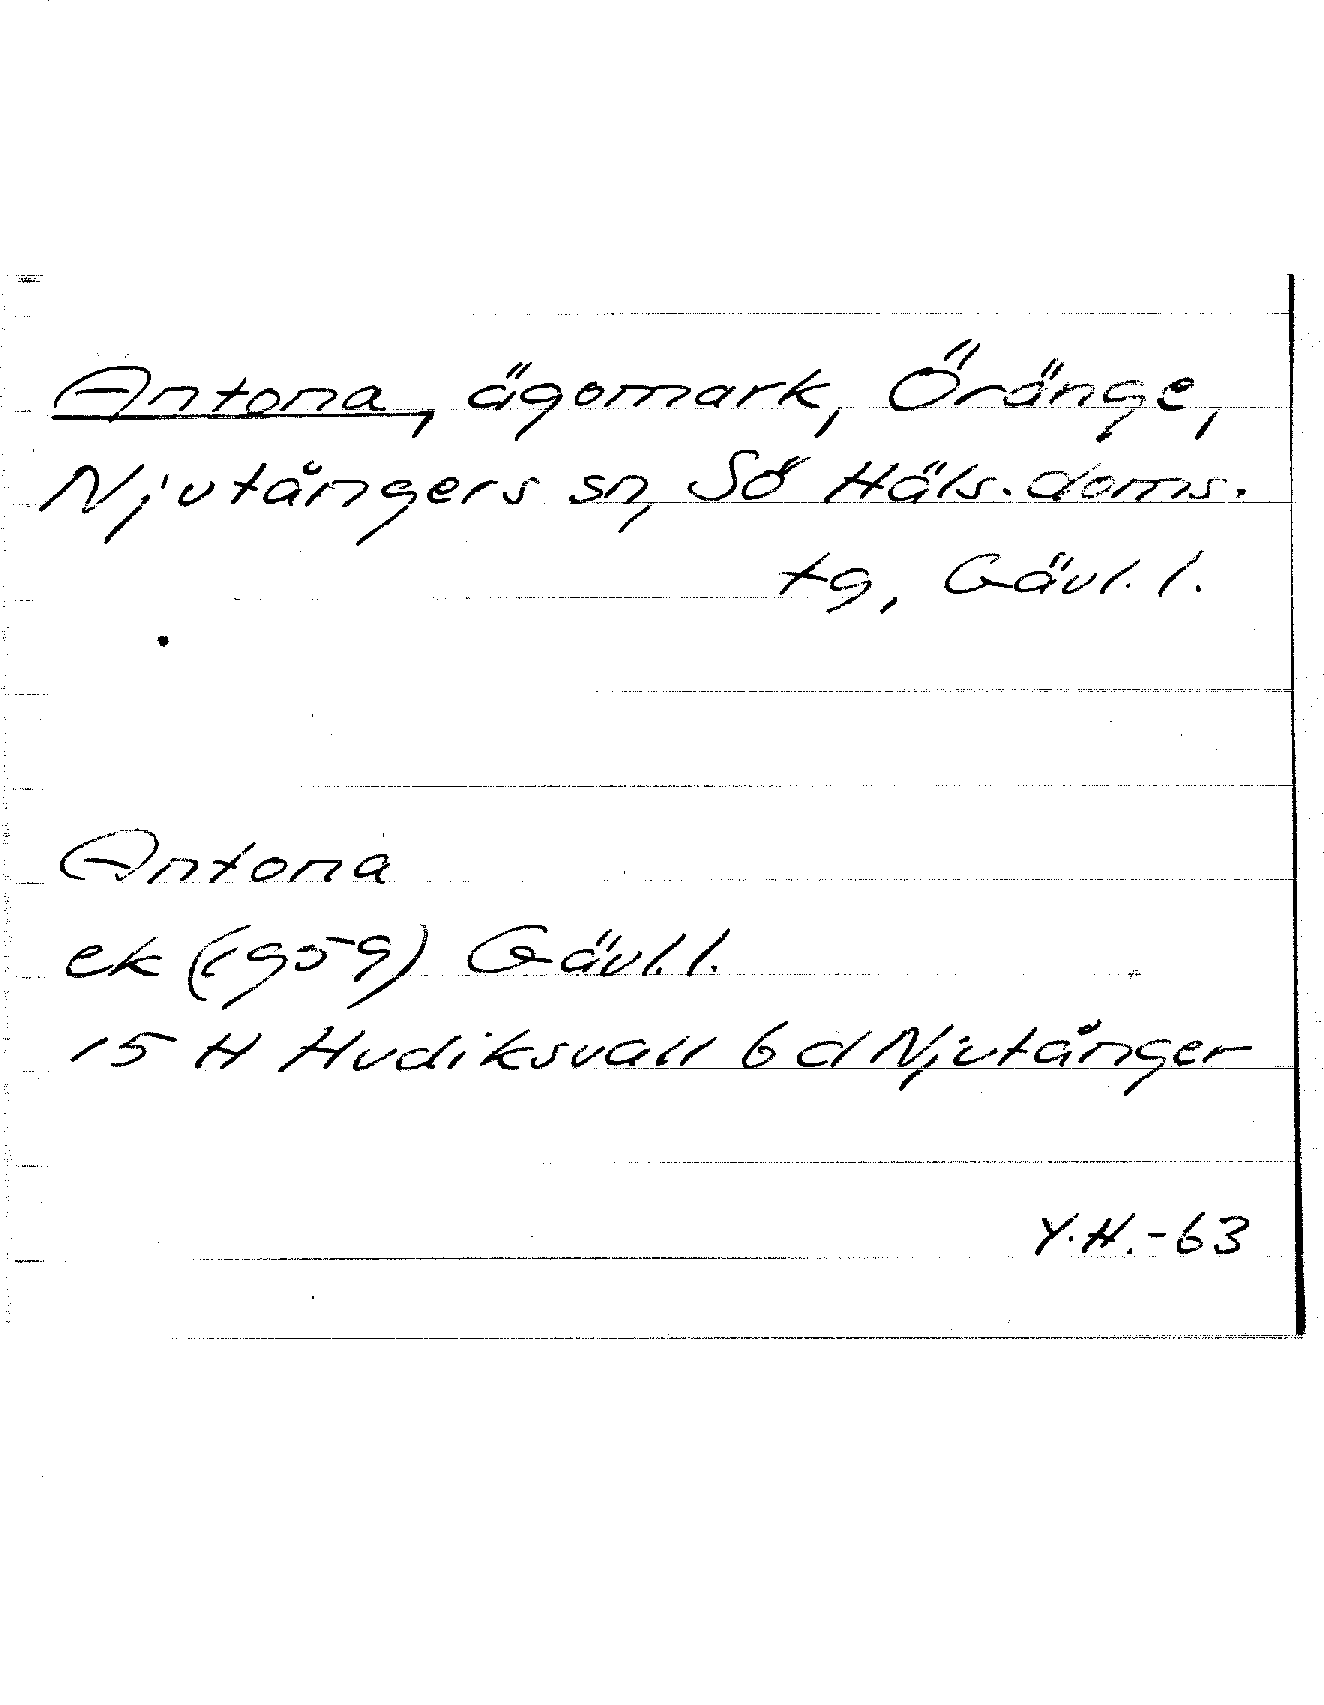 Antona, ägomark, Öränge,
Njutångers sn, Sö Häls. doms.
tg, Gävl. l.
Antona
ek (1959) Gävl. l.
15 H Hudiksvall 6 d Njutånger
Y.H.-63